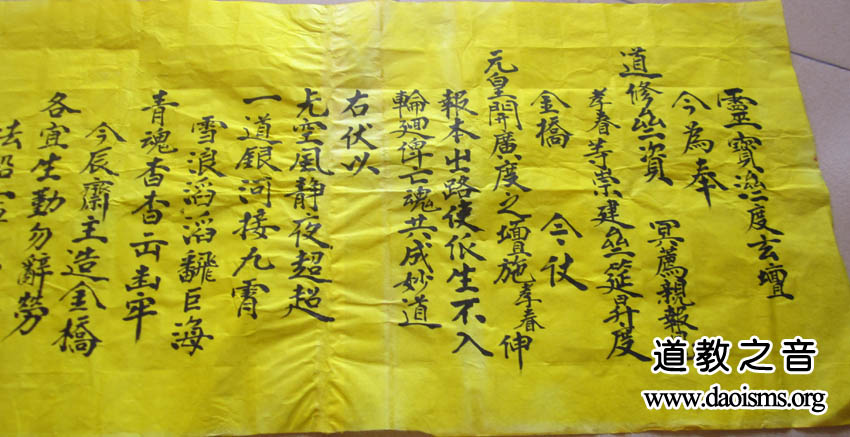 靈寶濟度玄壇
今為奉
道修齋資 冥薦親報
孝春等崇建齋筵昇度
金橋 今仗
元皇開廣度之壇施孝春伸
報本出路使依生不入
輪迴俾亡魂共成妙道
右伏以
无空風靜夜超超
一道銀河接九霄
雪浪滔滔飜巨海
青魂杳杳出幽牢
今辰齋主造金橋
各宜生勤勿辭勞
道教之音
www.daoisms.org